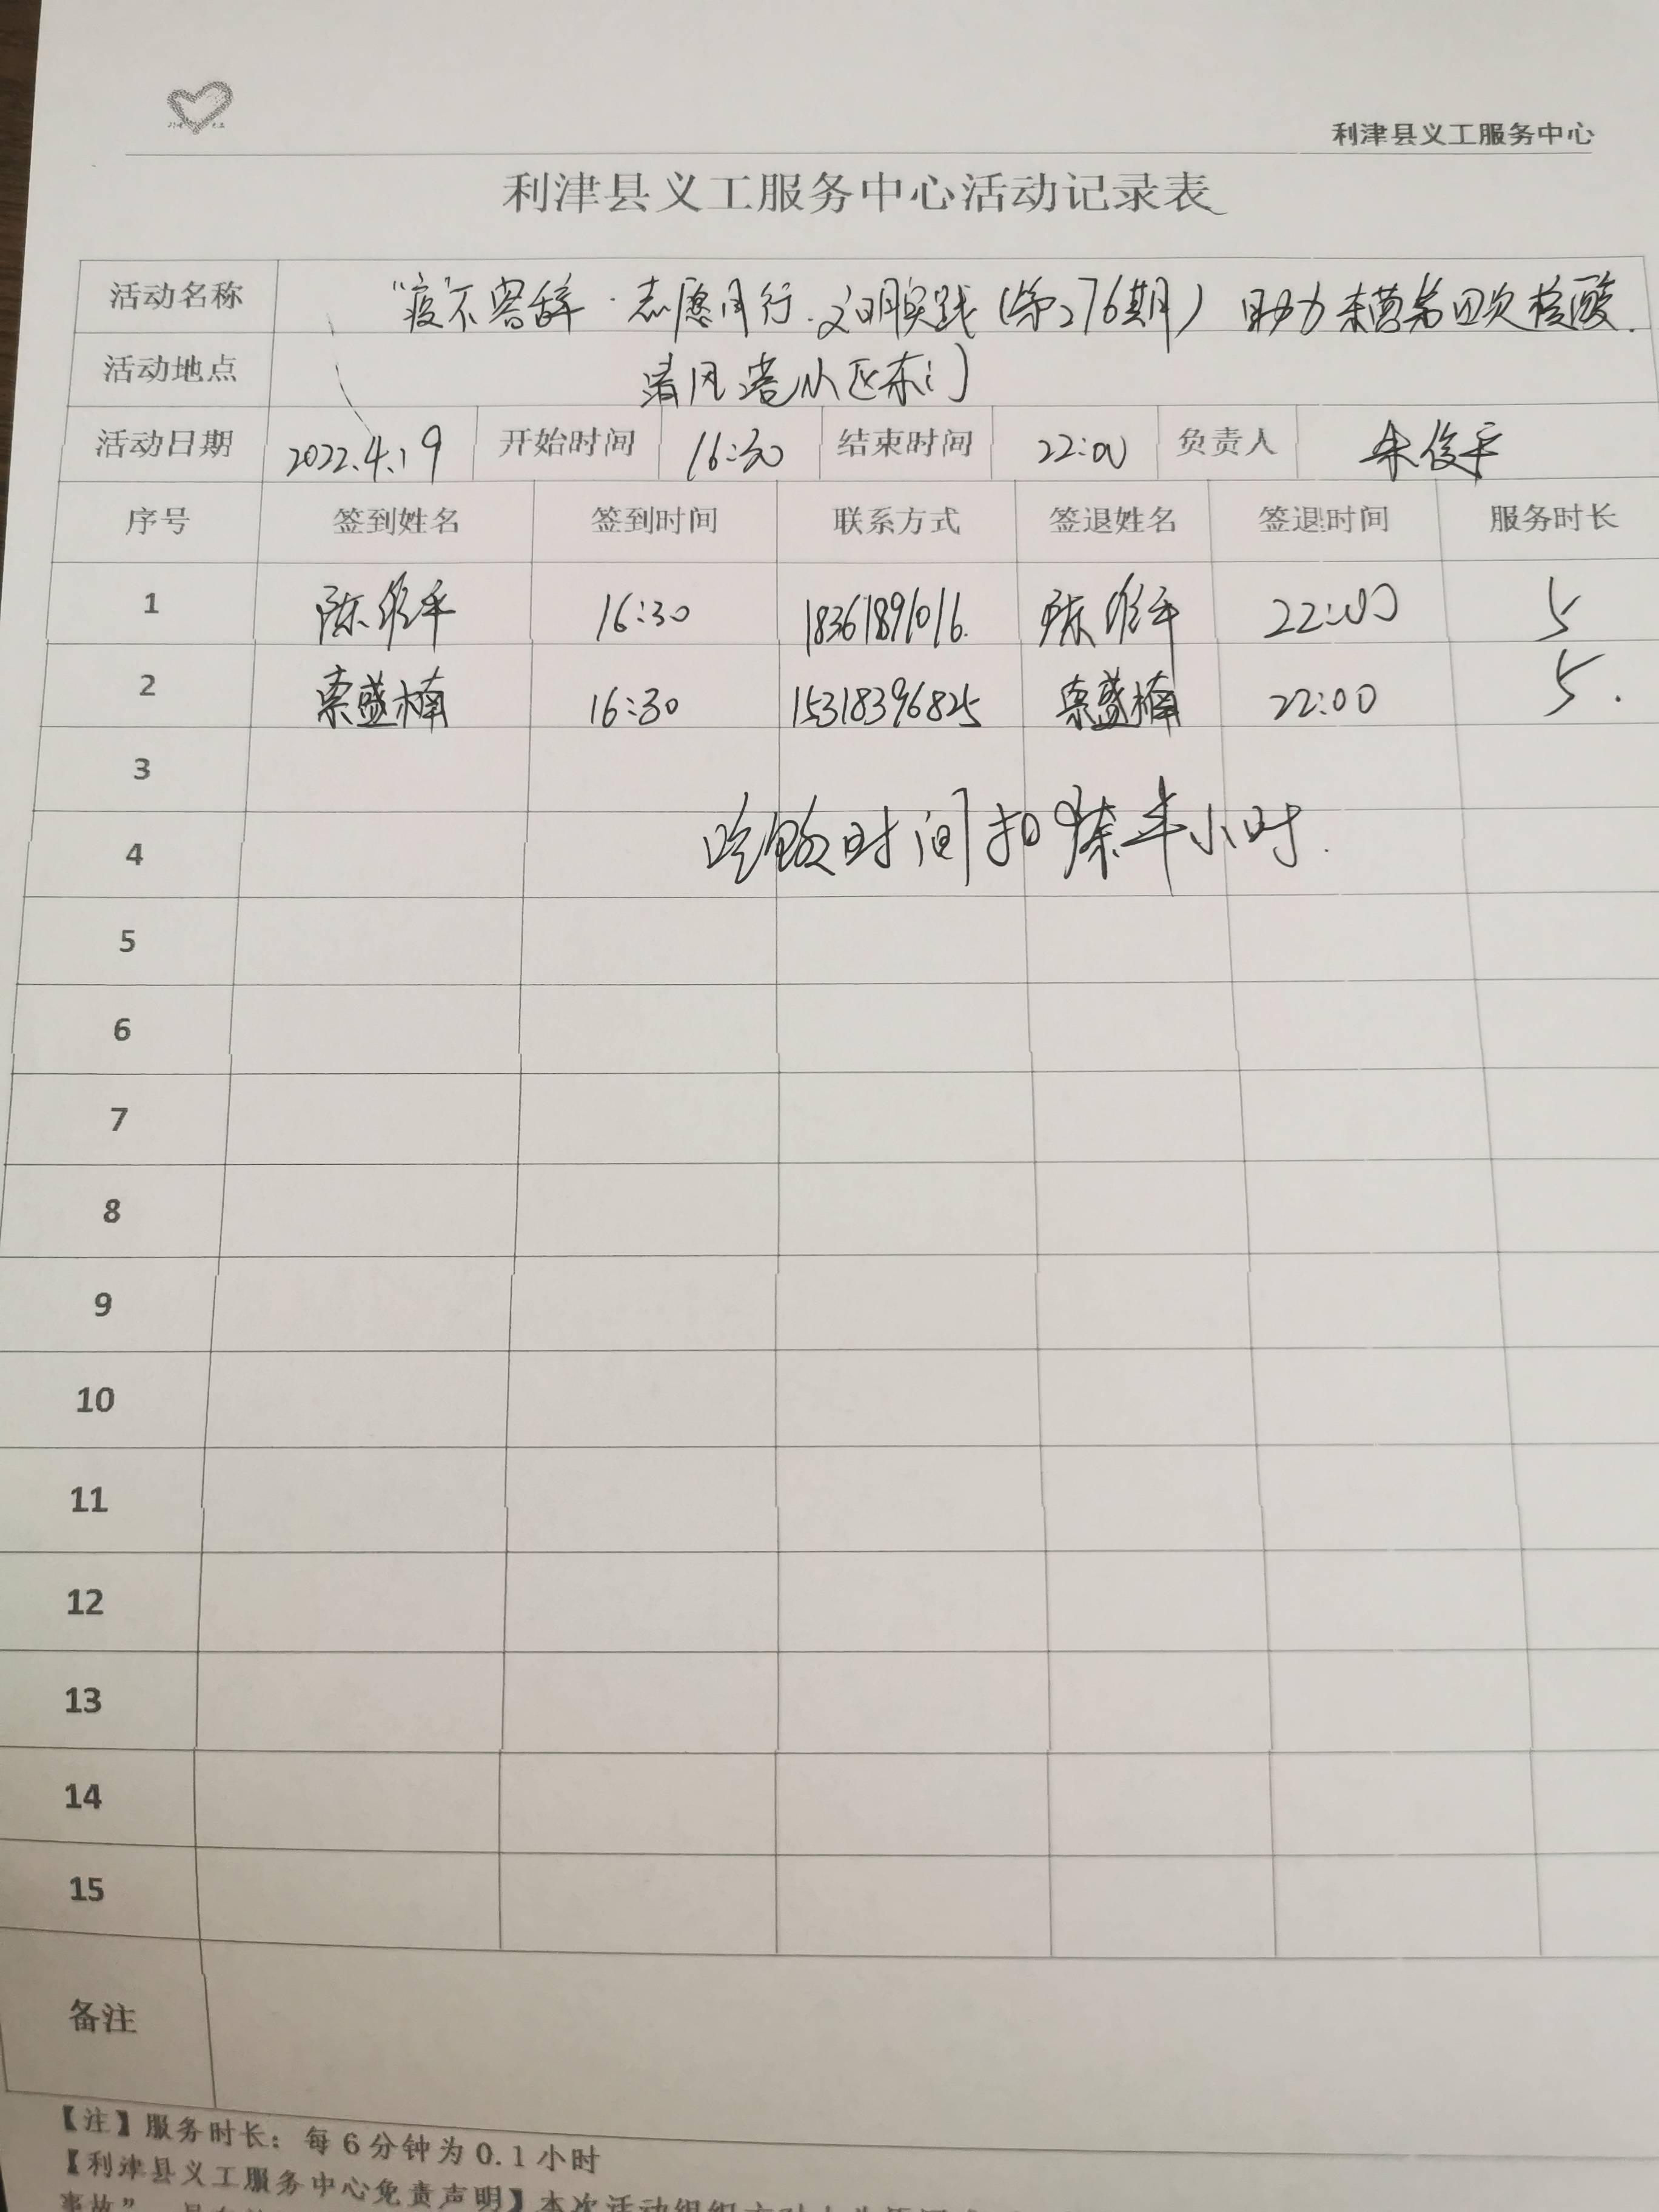 利津县义工服务中心
利津县义工服务中心活动记录表
活动名称 "疫"不容辞·志愿同行.文明实践(第276期) 助力 第四次核酸.
活动地点 清风 小区东门
活动日期 2022.4.19 开始时间 16:30 结束时间 22:00 负责人 朱俊平
序号 签到姓名 签到时间 联系方式 签退姓名 签退时间 服务时长
1 陈 平 16:30 18361891016. 陈 平 22:00 5
2 索盛楠 16:30 15318396825 索盛楠 22:00 5.
3
吃饭时间扣除半小时.
4
5
6
7
8
9
10
11
12
13
14
15
备注
【注】服务时长：每6分钟为0.1小时
【利津县义工服务中心免责声明】本次活动组织方
事故”